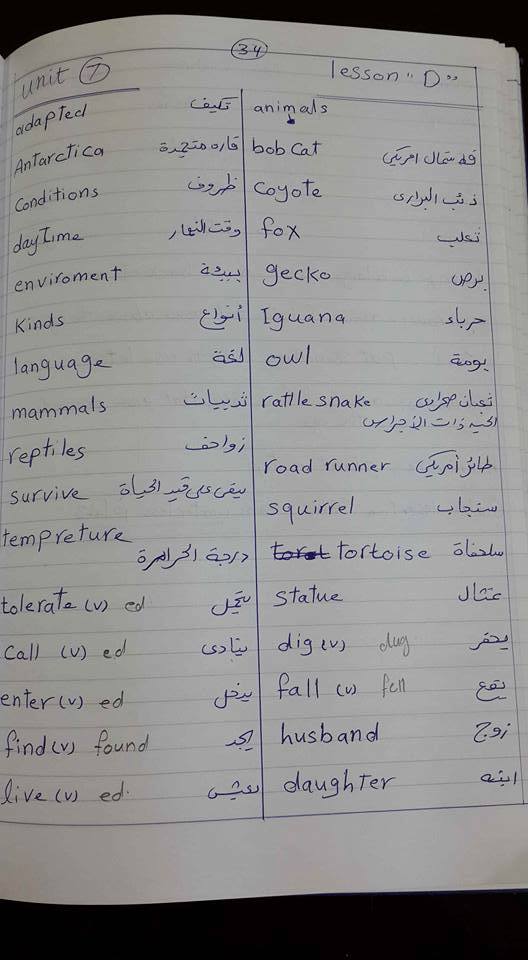 34
unit 7 lesson "D"
adapted تكيف animals
Antarctica قاره متجمدة bob cat قط شمال امريكي
Conditions ظروف Coyote ذئب البرارى
daytime وقت النهار fox ثعلب
enviroment بيئة gecko برص
Kinds أنواع Iguana حرباء
language لغة owl بومة
mammals ثدييات rattle snake ثعبان صحراوى
الحيه ذات الأجراس
reptiles زواحف road runner طائر أمريكي
survive يبقى على قيد الحياة squirrel سنجاب
tempreture درجة الحرارة tortoise سلحفاة
tolerate (v) ed يتحمل Statue تمثال
Call (v) ed ينادى dig (v) dug يحفر
enter (v) ed يدخل fall (v) fell يقع
find (v) found يجد husband زوج
live (v) ed يعيش daughter ابنه